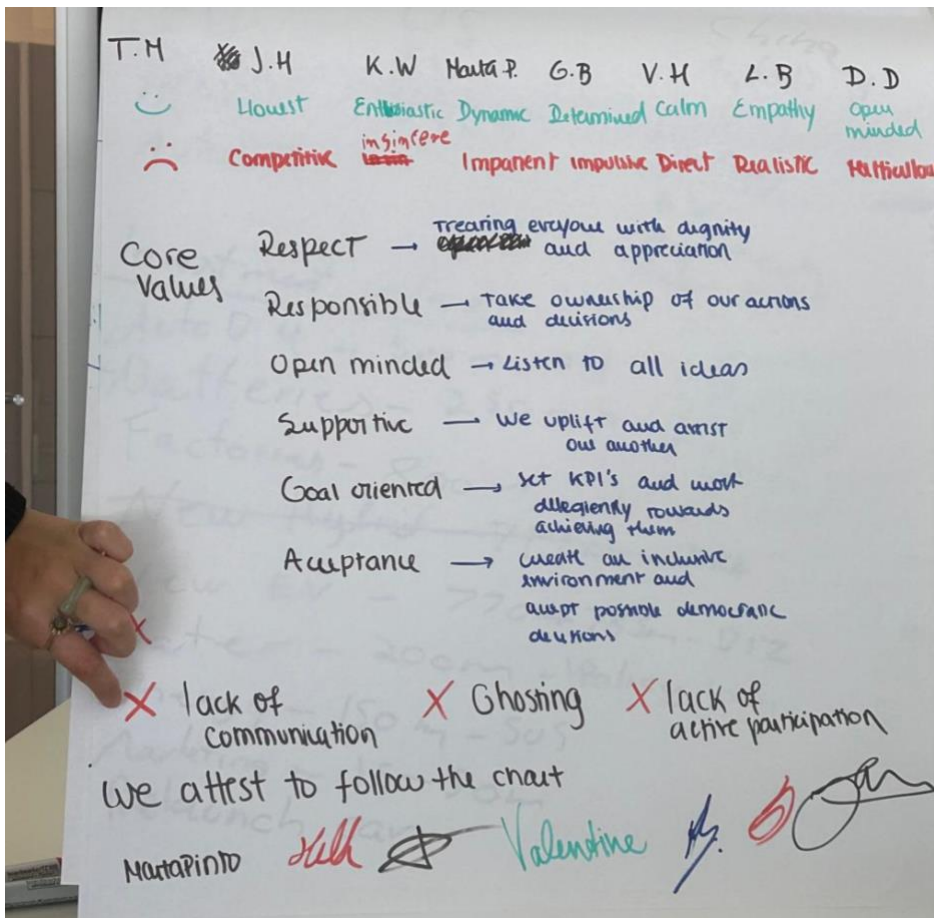 T.M J.H K.W Marta P. G.B V.H L.B D.D
Honest Enthusiastic Dynamic Determined Calm Empathy Open minded
Competitive insincere Impatient Impulsive Direct Realistic
Core Values
Respect → Treating everyone with dignity
and appreciation
Responsible → Take ownership of our actions
and decisions
Open minded → Listen to all ideas
Supportive → We uplift and assist
one another
Goal oriented → set KPI's and work
dilegiently towards
achieving them
Acceptance → create an inclusive
environment and
accept possible democratic
decisions
X lack of
communication
X Ghosting
X lack of
active participation
We attest to follow the chart
Marta Pinto Valentine